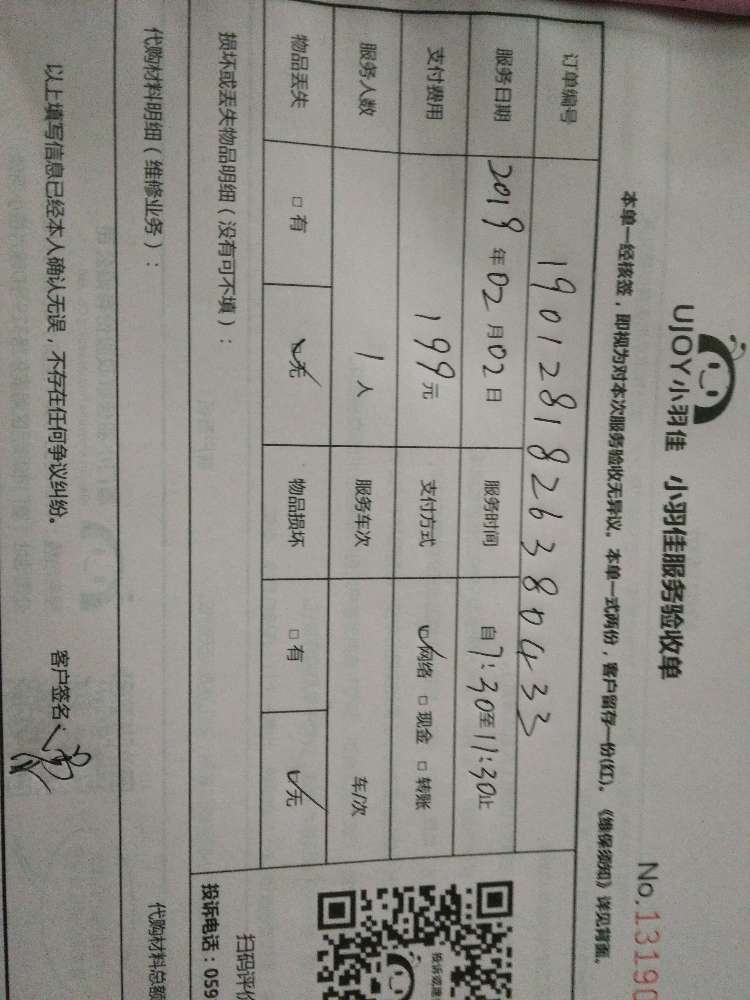 UJOY小羽佳 小羽佳服务验收单
No.13190
本单一经核签，即视为对本次服务验收无异议。本单一式两份，客户留存一份(红)。《维保须知》详见背面。
订单编号 190128182638 0433
服务日期 2019年02月02日 服务时间 自7:30至11:30止
支付费用 199元 支付方式 网络 现金 转账
服务人数 1人 服务车次 车/次
物品丢失 有 无 物品损坏 有 无
损坏或丢失物品明细（没有可不填）：
扫码评价
投诉电话：059
代购材料明细（维修业务）：
代购材料总额
以上填写信息已经本人确认无误，不存在任何争议纠纷。 客户签名：